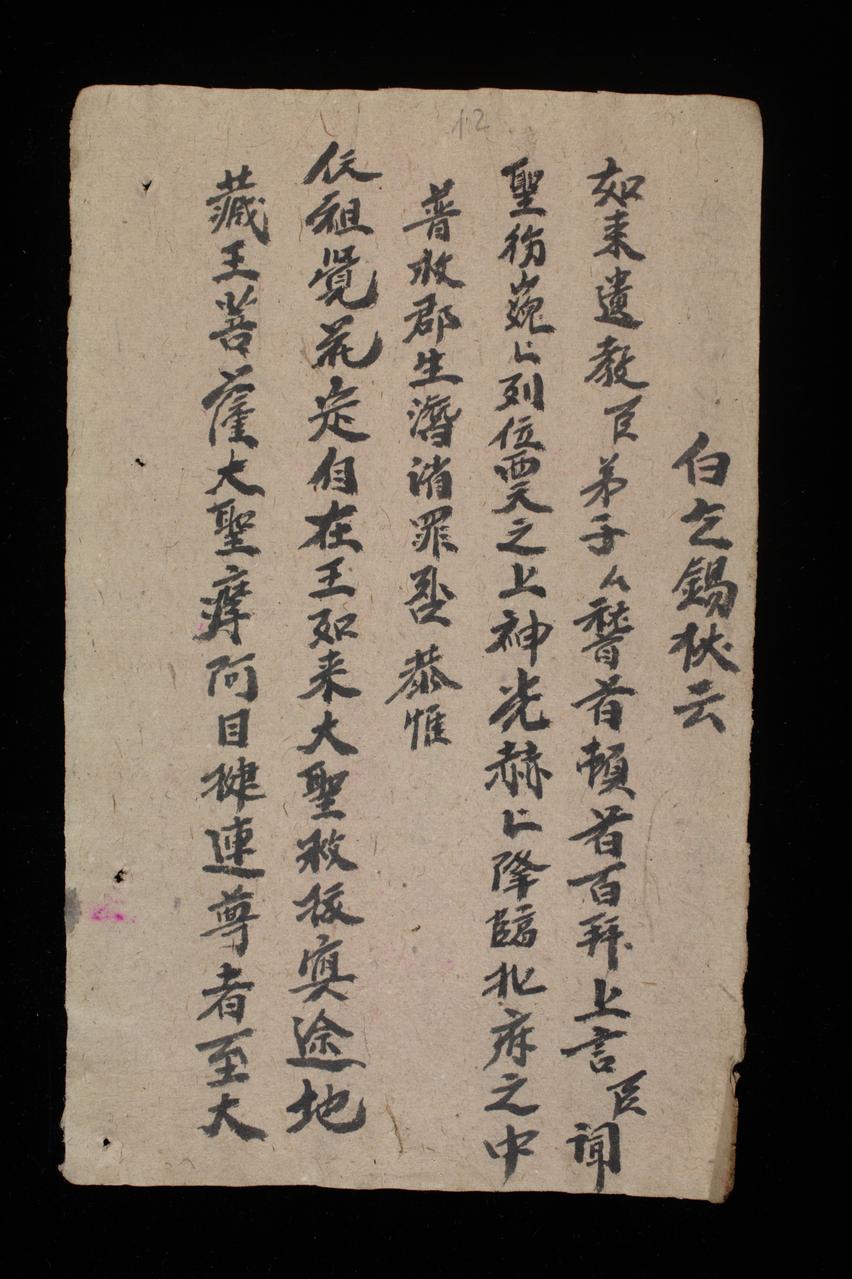 白乞錫杖云
如来遺教臣弟子厶稽首頓首百拜上言臣闻
聖衔巍〻列位雲之上神光赫〻降臨北府之中
普救郡生濟消罪 恭惟
仸祖覺花定自在王如来大聖救拔冥途地
藏王菩薩大聖摩阿目揵連尊者至大
12